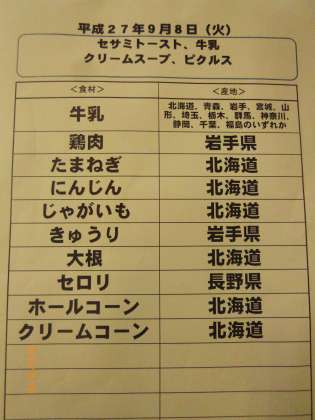 平成２７年９月８日（火）
セサミトースト、牛乳
クリームスープ、ピクルス
＜食材＞ ＜産地＞
牛乳 北海道、青森、岩手、宮城、山
形、埼玉、栃木、群馬、神奈川、
静岡、千葉、福島のいずれか
鶏肉 岩手県
たまねぎ 北海道
にんじん 北海道
じゃがいも 北海道
きゅうり 岩手県
大根 北海道
セロリ 長野県
ホールコーン 北海道
クリームコーン 北海道